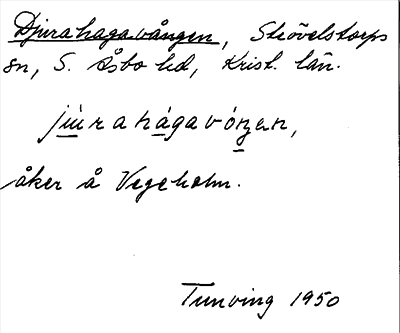 Djurahagavången, Strövelstorps
sn, S. Åsbo hd, Krist. län.
júrahàgavóŋan,
åker å Vegeholm.
Tunving 1950